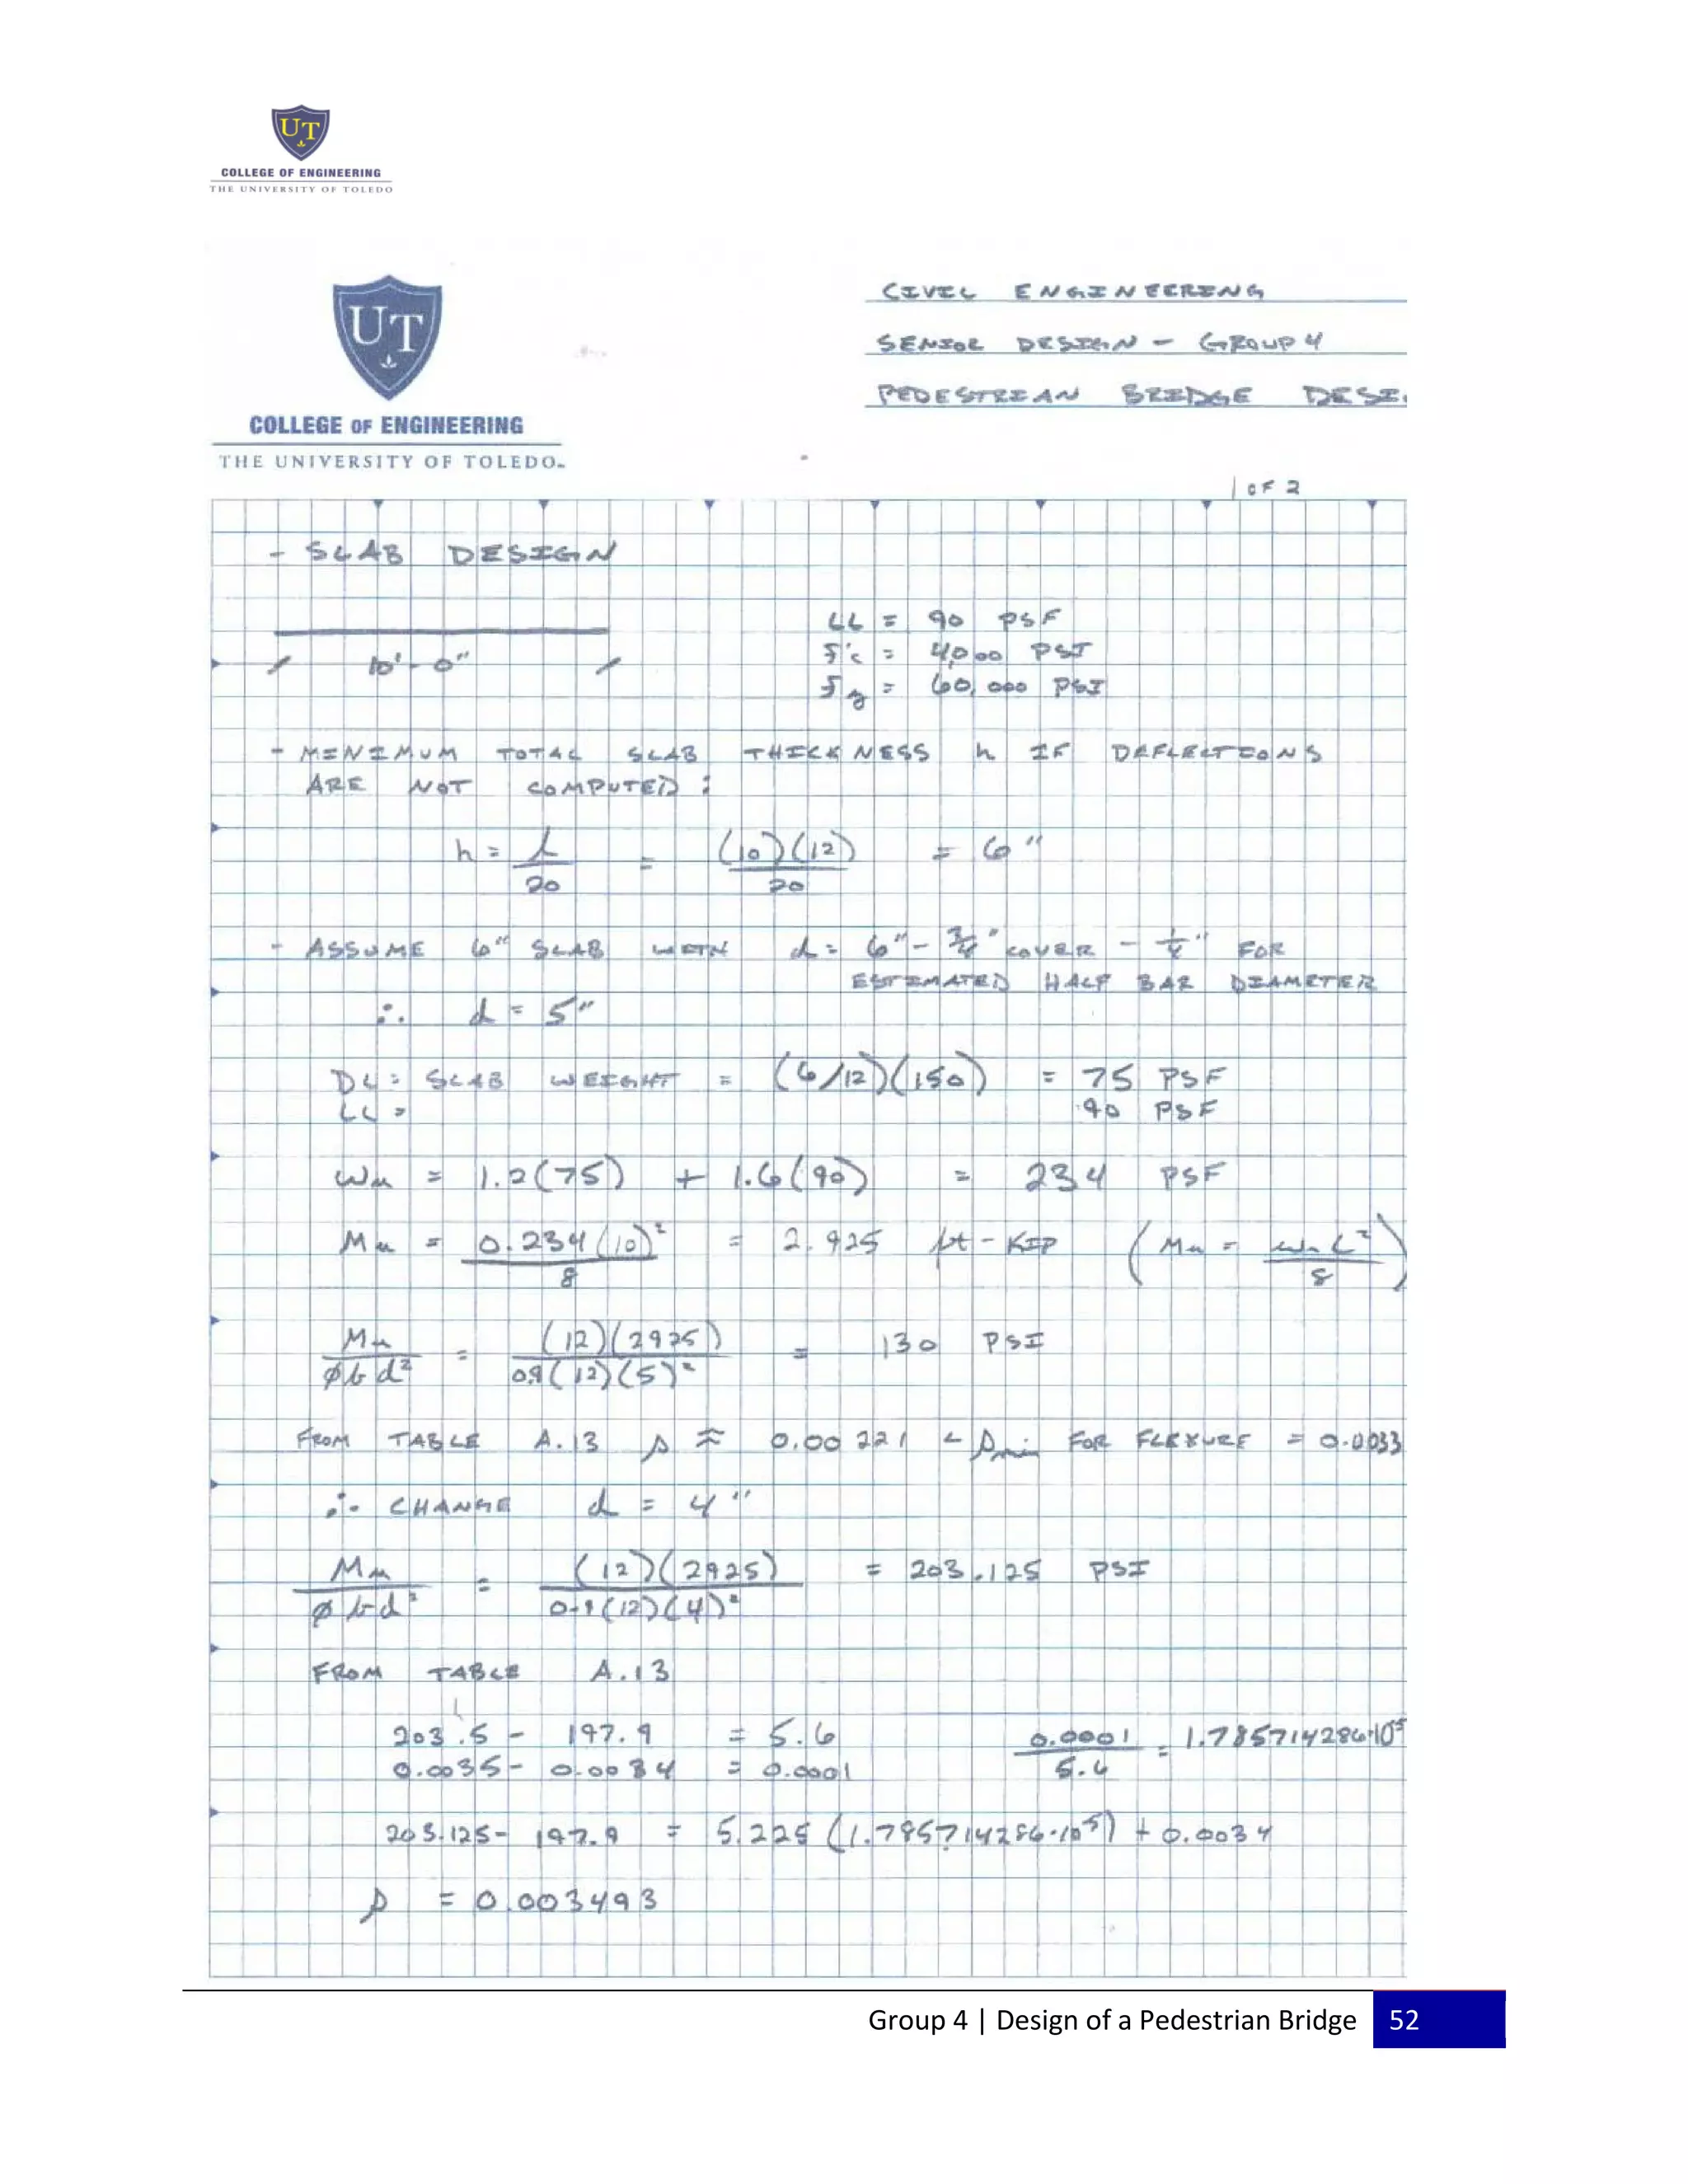 UT
COLLEGE OF ENGINEERING
THE UNIVERSITY OF TOLEDO
UT
COLLEGE OF ENGINEERING
THE UNIVERSITY OF TOLEDO
CIVIL ENGINEERING
SENIOR DESIGN - GROUP 4
PEDESTRIAN BRIDGE DESI
1 OF 2
- SLAB DESIGN
10' - 0"
LL = 90 PSF
f'c = 4,000 PSI
fy = 60,000 PSI
- MINIMUM TOTAL SLAB THICKNESS h IF DEFLECTIONS
ARE NOT COMPUTED :
h = l/20 = (10)(12)/20 = 6"
- ASSUME 6" SLAB WITH d = 6" - 3/4" COVER - 1/4" FOR
ESTIMATED HALF BAR DIAMETER
∴ d = 5"
DL = SLAB WEIGHT = (6/12)(150) = 75 PSF
LL = 90 PSF
wu = 1.2(75) + 1.6(90) = 234 PSF
Mu = 0.234(10)²/8 = 2.925 ft-KIP (Mu = wu L²/8)
Mu/φbd² = (12)(2925)/0.9(12)(5)² = 130 PSI
FROM TABLE A.13 ρ ≈ 0.00221 < ρmin FOR FLEXURE = 0.0033
∴ CHANGE d = 4"
Mu/φbd² = (12)(2925)/0.9(12)(4)² = 203.125 PSI
FROM TABLE A.13
203.5 - 197.9 = 5.6
0.0035 - 0.0034 = 0.0001
0.0001/5.6 = 1.785714286·10⁻⁵
203.125 - 197.9 = 5.225 (1.785714286·10⁻⁵) + 0.0034
ρ = 0.003493
Group 4 | Design of a Pedestrian Bridge 52